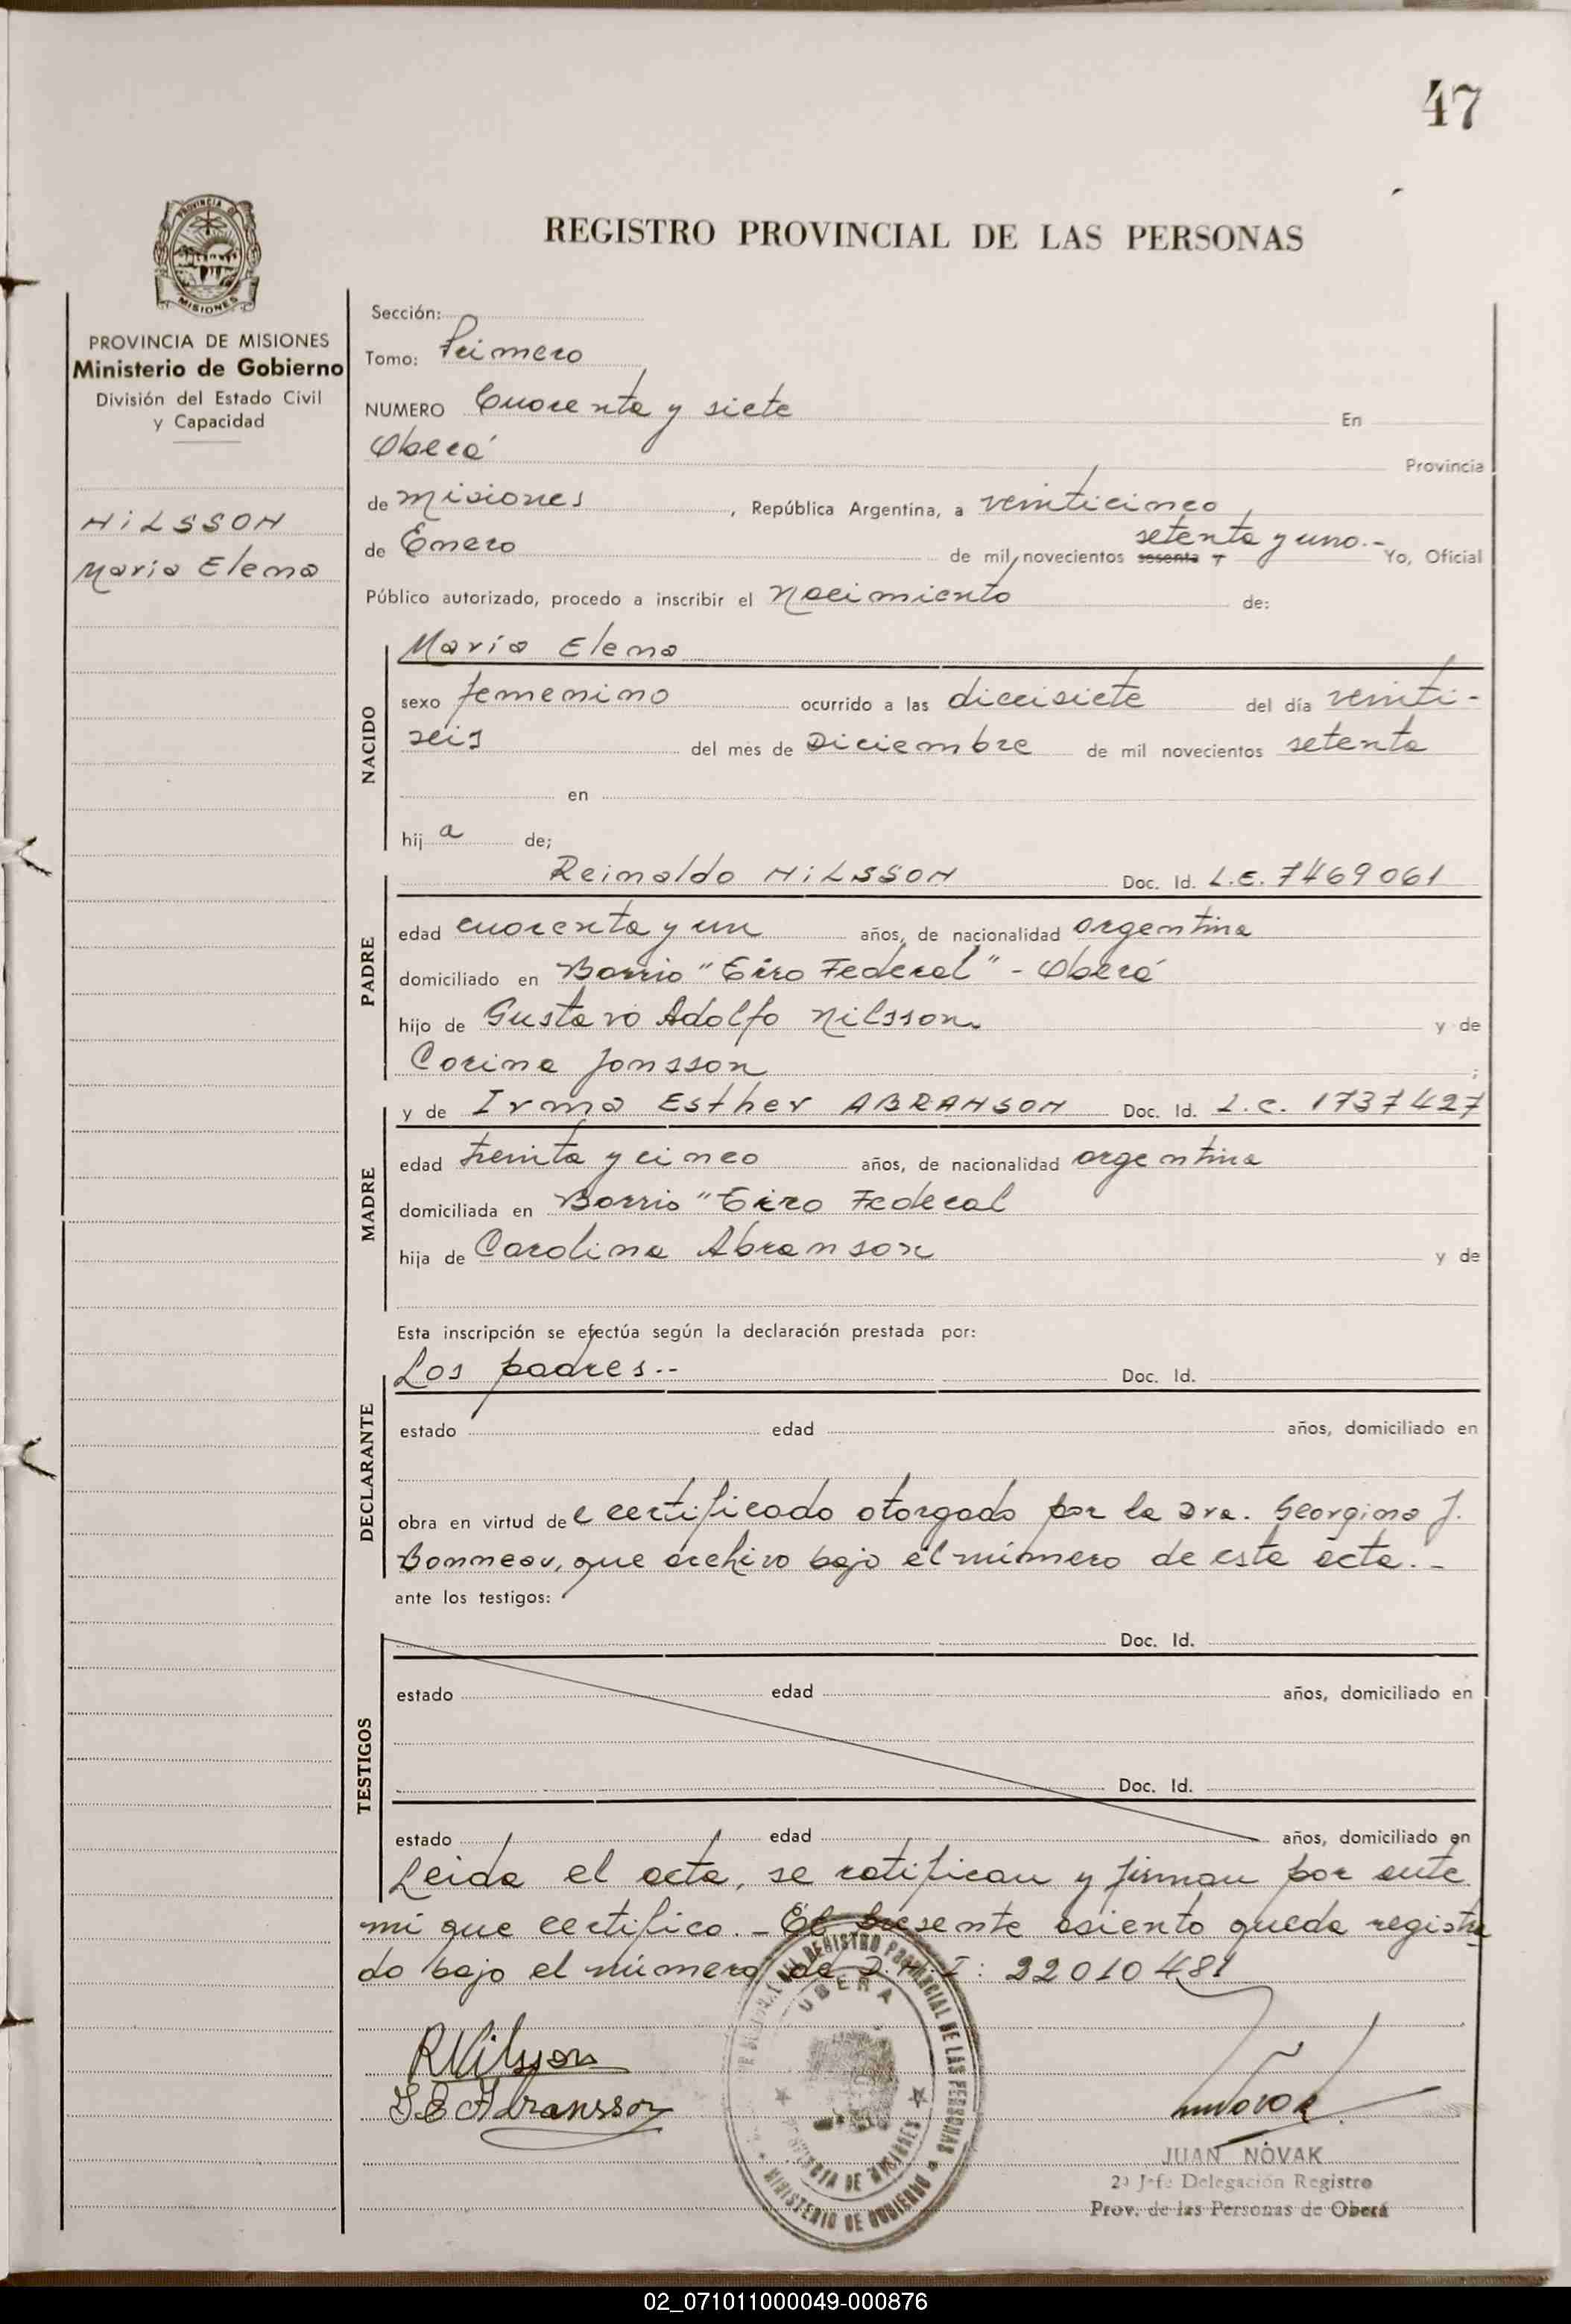 47
PROVINCIA DE
MISIONES
REGISTRO PROVINCIAL DE LAS PERSONAS
PROVINCIA DE MISIONES
Ministerio de Gobierno
División del Estado Civil
y Capacidad
NILSSON
Maria Elena
Sección:
Tomo: Primero
NUMERO Cuarenta y siete En
Oberá Provincia
de Misiones, República Argentina, a veinticinco
de Enero de mil novecientos sesenta y setenta y uno.- Yo, Oficial
Público autorizado, procedo a inscribir el Nacimiento de:
NACIDO
María Elena
sexo femenino ocurrido a las diecisiete del día veinti-
seis del mes de Diciembre de mil novecientos setenta
en
hija de;
PADRE
Reinaldo NILSSON Doc. Id. L.E. 7469061
edad cuarenta y un años, de nacionalidad argentina
domiciliado en Barrio "Tiro Federal" - Oberá
hijo de Gustavo Adolfo Nilsson. y de
Corina Jonsson ;
MADRE
y de Irma Esther ABRANSON Doc. Id. L.C. 1737427
edad treinta y cinco años, de nacionalidad argentina
domiciliada en Barrio "Tiro Federal
hija de Carolina Abranson y de
Esta inscripción se efectúa según la declaración prestada por:
DECLARANTE
Los padres.-- Doc. Id.
estado edad años, domiciliado en
obra en virtud del certificado otorgado por la Dra. Georgina J.
Bonneau, que archivo bajo el número de esta acta.-
ante los testigos:
TESTIGOS
Doc. Id.
estado edad años, domiciliado en
Doc. Id.
estado edad años, domiciliado en
Leida el acta, se ratifican y firman por ante
mi que certifico.- El presente asiento queda registra
do bajo el número de D.N.I: 22010481
RNilsson
I E Abransson
REGISTRO PROVINCIAL DE LAS PERSONAS
OBERA
PROVINCIA DE MISIONES
MINISTERIO DE GOBIERNO
JUAN NOVAK
2º Jefe Delegación Registro
Prov. de las Personas de Oberá
02_071011000049-000876